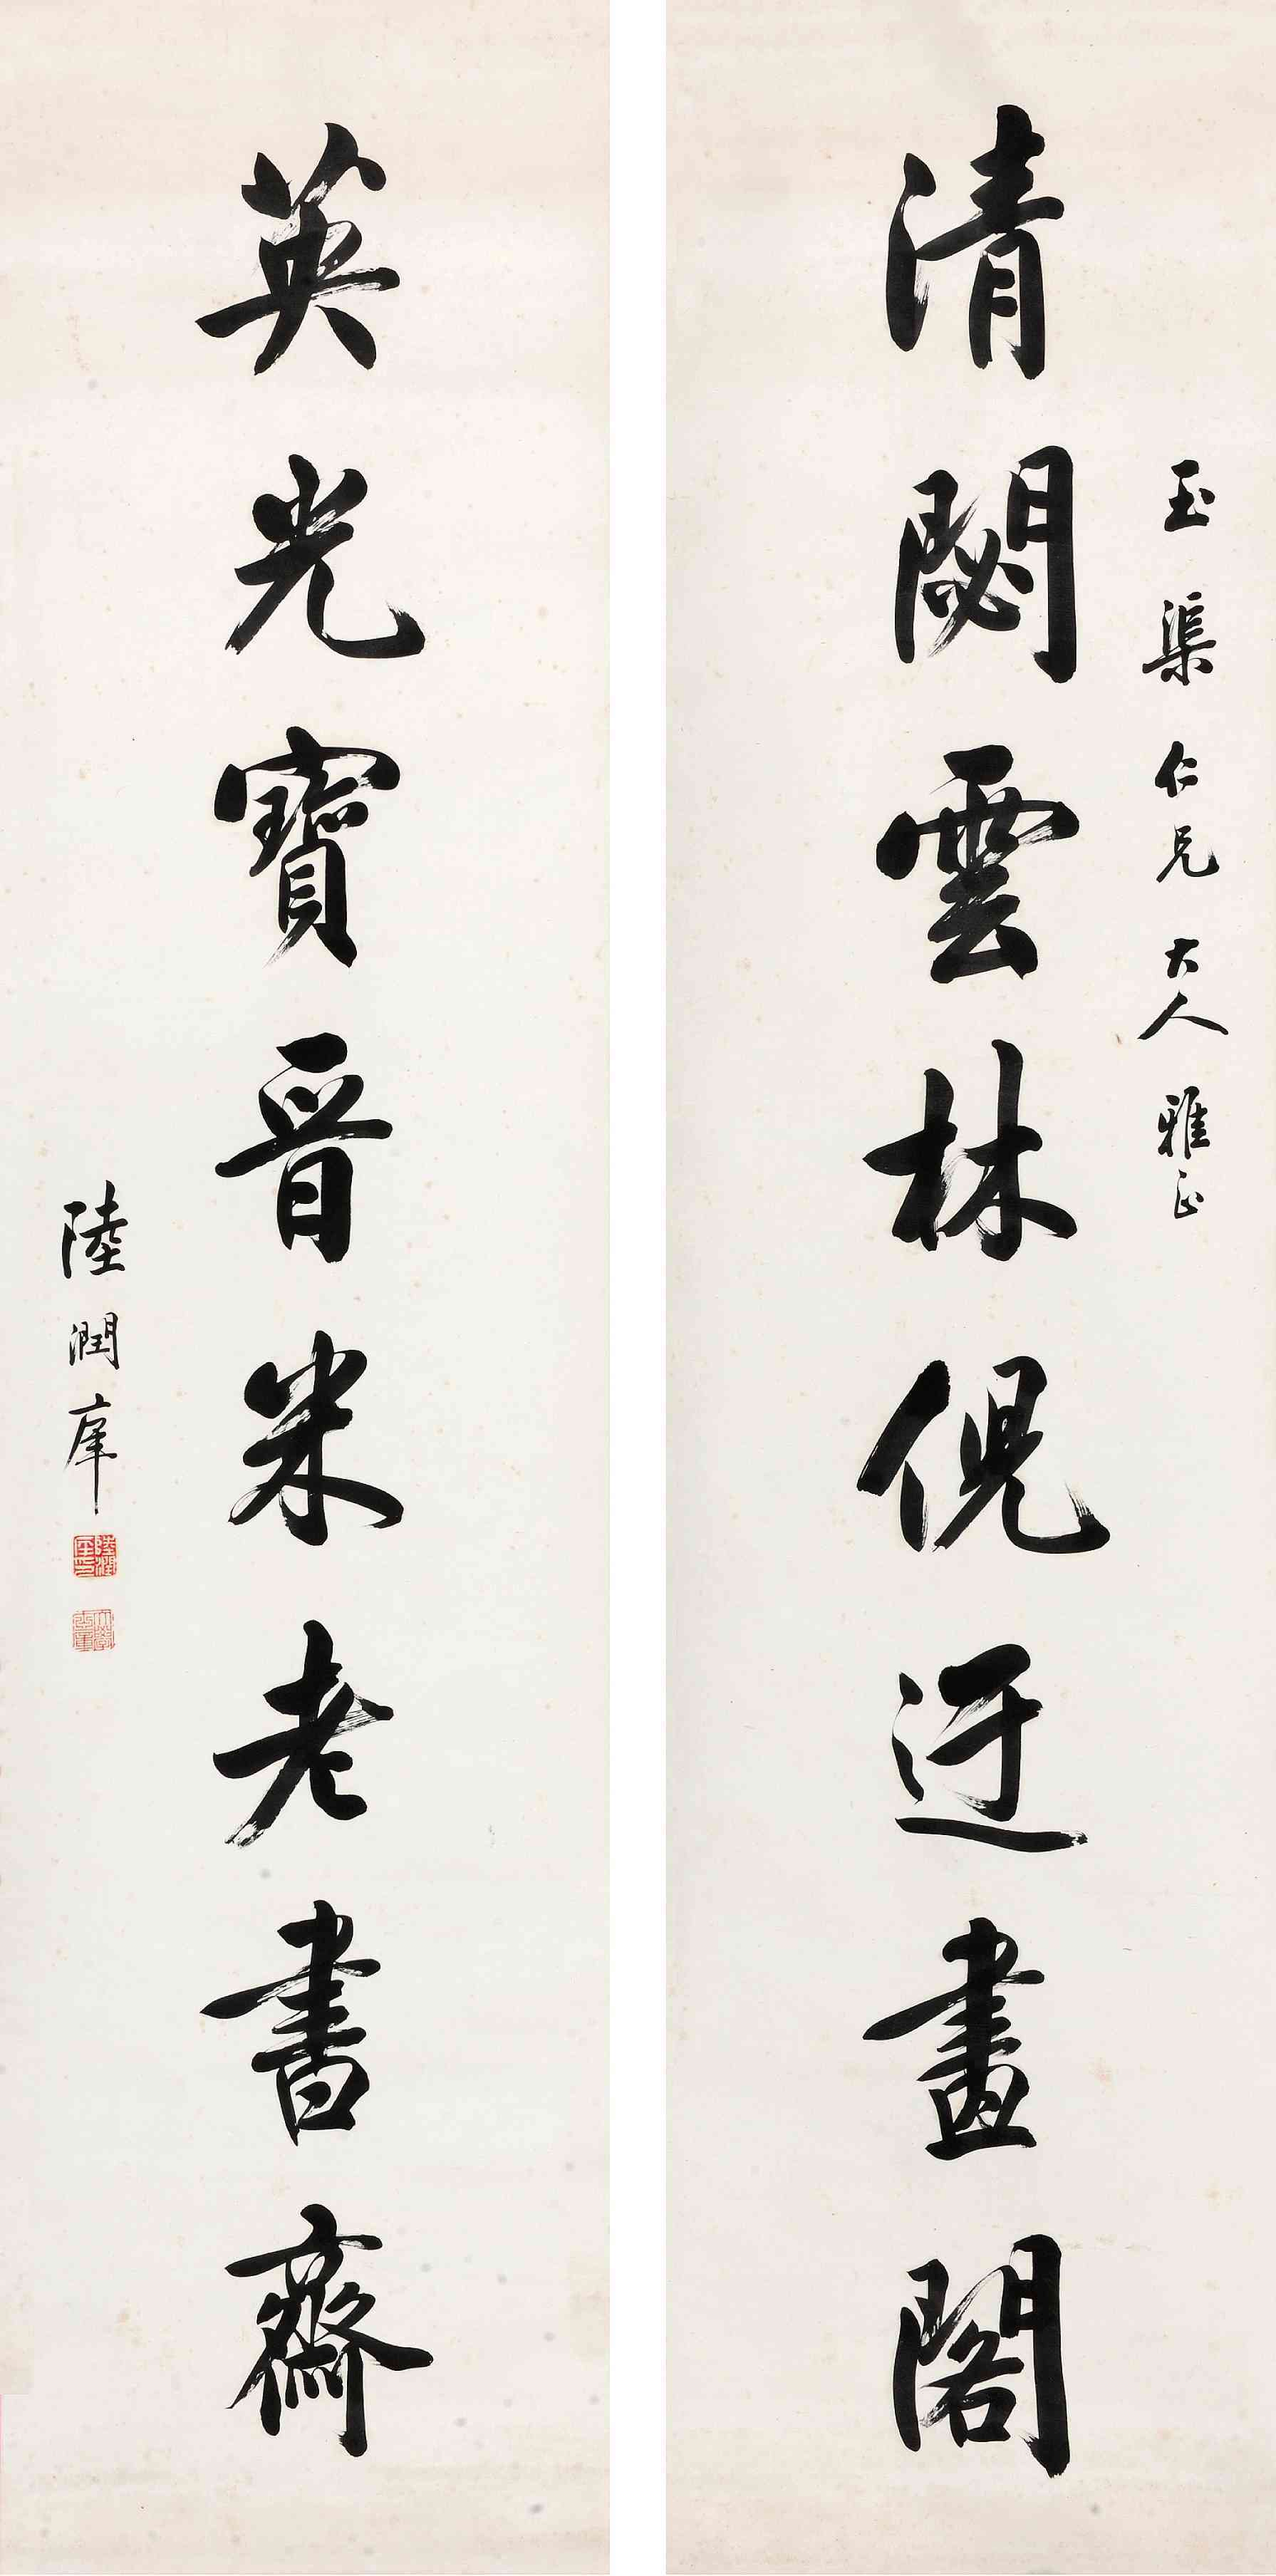 玉渠仁兄大人雅正
清閟雲林倪迂畫閣
英光寶晉米老書齋
陸潤庠